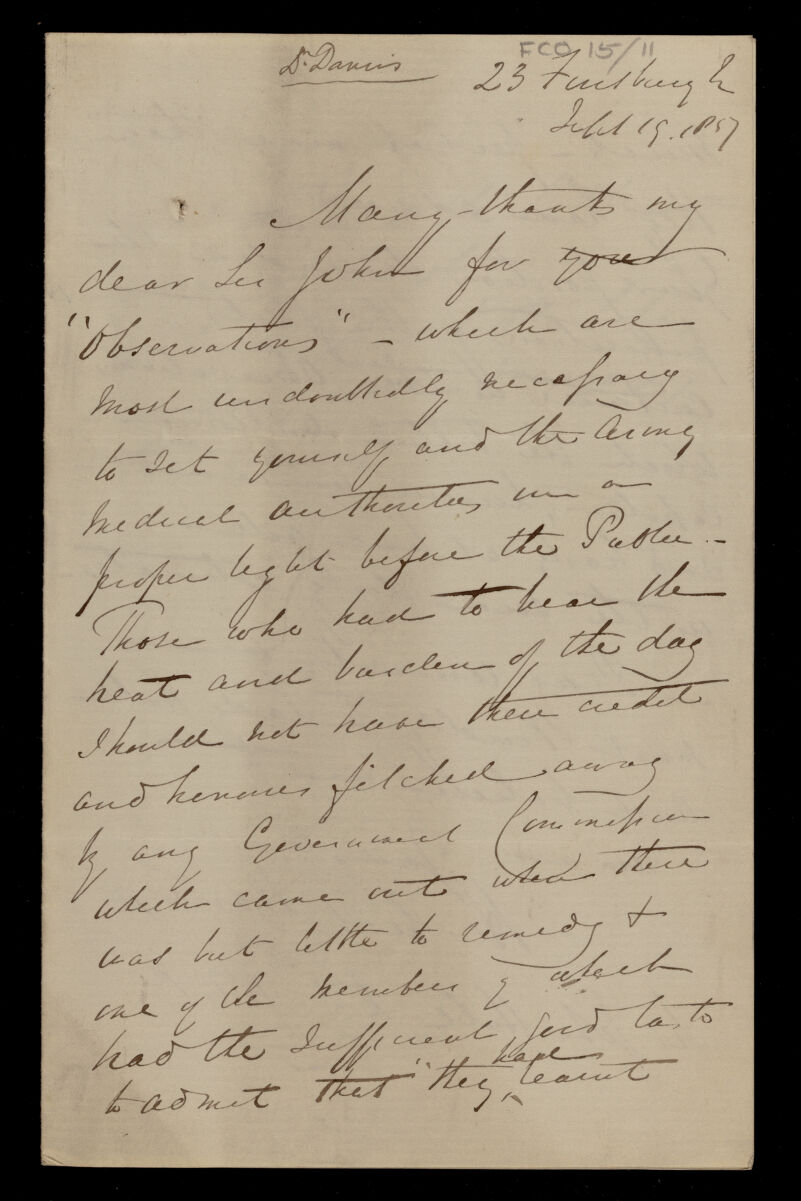 FCO 15/11
Dr. Davies
23 Finsbury Sq
Sept 19. 1857
Many thanks my
dear Sir John for your
"Observations" - which are
most undoubtedly necessary
to set yourself and the Army
Medical authorities in a
proper light before the Public -
Those who had to bear the
heat and burden of the day
should not have their credit
and honours filched away
by any Government Commission
which came out when there
was but little to remedy &
one of the members of which
had the sufficient good taste
to admit that "they have learnt